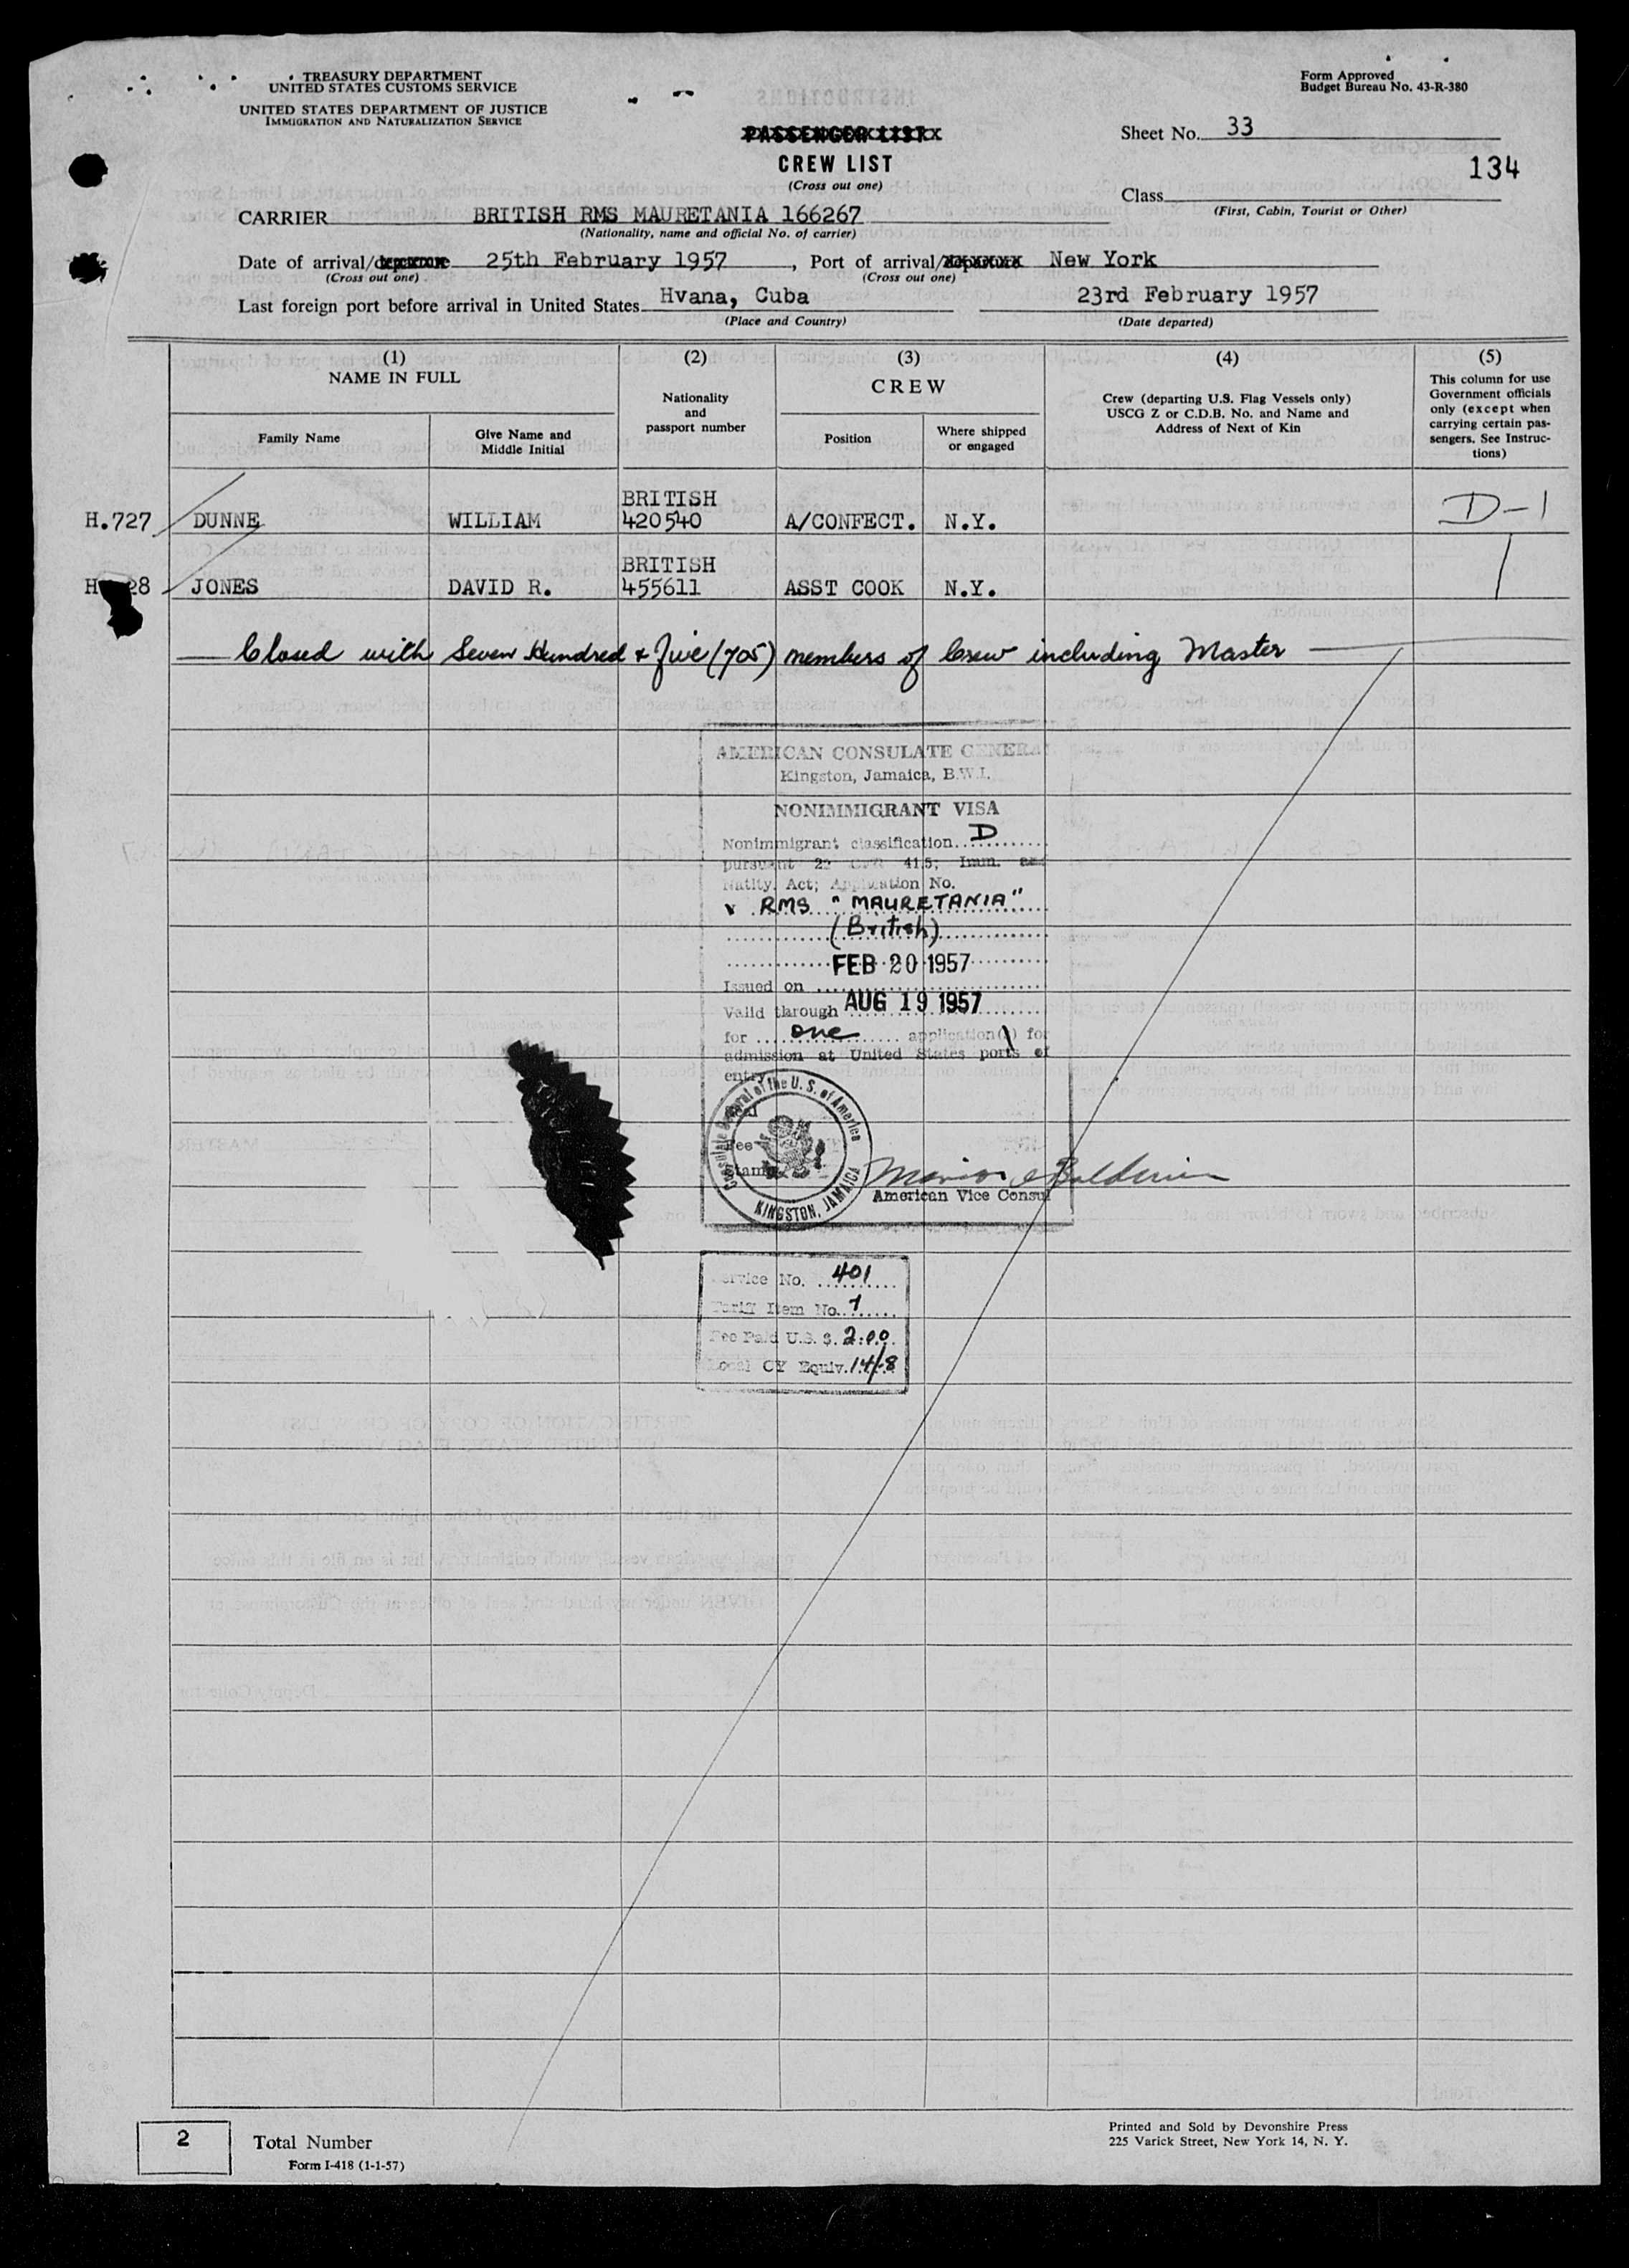 TREASURY DEPARTMENT
UNITED STATES CUSTOMS SERVICE
UNITED STATES DEPARTMENT OF JUSTICE
IMMIGRATION AND NATURALIZATION SERVICE
Form Approved
Budget Bureau No. 43-R-380
PASSENGER LIST
CREW LIST
(Cross out one)
Sheet No. 33
134
Class
(First, Cabin, Tourist or Other)
CARRIER BRITISH RMS MAURETANIA 166267
(Nationality, name and official No. of carrier)
Date of arrival/departure 25th February 1957, Port of arrival/departure New York
(Cross out one) (Cross out one)
Last foreign port before arrival in United States Hvana, Cuba 23rd February 1957
(Place and Country) (Date departed)
(1) (2) (3) (4) (5)
NAME IN FULL
Family Name
Give Name and
Middle Initial
Nationality
and
passport number
CREW
Position
Where shipped
or engaged
Crew (departing U.S. Flag Vessels only)
USCG Z or C.D.B. No. and Name and
Address of Next of Kin
This column for use
Government officials
only (except when
carrying certain pas-
sengers. See Instruc-
tions)
BRITISH
H.727 DUNNE WILLIAM 420540 A/CONFECT. N.Y. D-1
BRITISH
H 28 JONES DAVID R. 455611 ASST COOK N.Y.
Closed with Seven Hundred & Five (705) members of Crew including Master
AMERICAN CONSULATE GENERAL
Kingston, Jamaica, B.W.I.
NONIMMIGRANT VISA
Nonimmigrant classification D
pursuant 22 CFR 41.5; Imm. and
Natlty. Act; Application No.
RMS "MAURETANIA"
(British)
FEB 20 1957
Issued on
Valid through AUG 19 1957
for one application( ) for
admission at United States ports of
entry
Seal
Fee
Stamp
Consulate General of the U. S. of America
KINGSTON, JAMAICA
American Vice Consul
Service No. 401
Tariff Item No. 7
Fee Paid U.S. $. 2.00
Local CY Equiv. 14/8
2
Total Number
Form I-418 (1-1-57)
Printed and Sold by Devonshire Press
225 Varick Street, New York 14, N. Y.